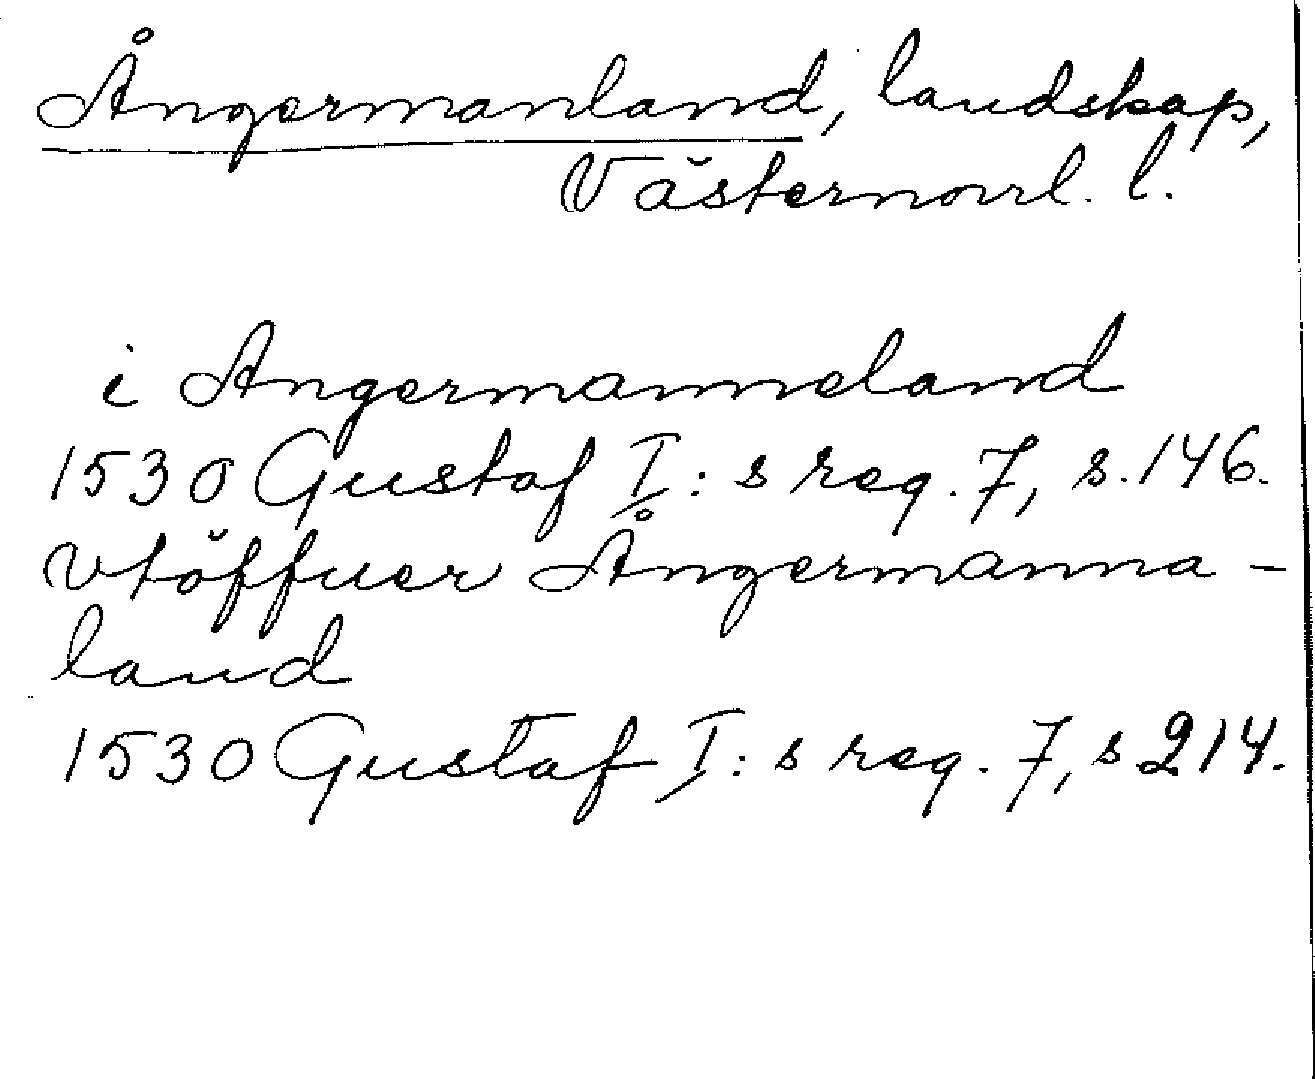 Ångermanland, landskap,
Västernorrl. l.
i Angermanneland
1530 Gustaf I:s reg. 7, s. 146.
vtöffuer Ångermanna-
land
1530 Gustaf I:s reg. 7, s 214.